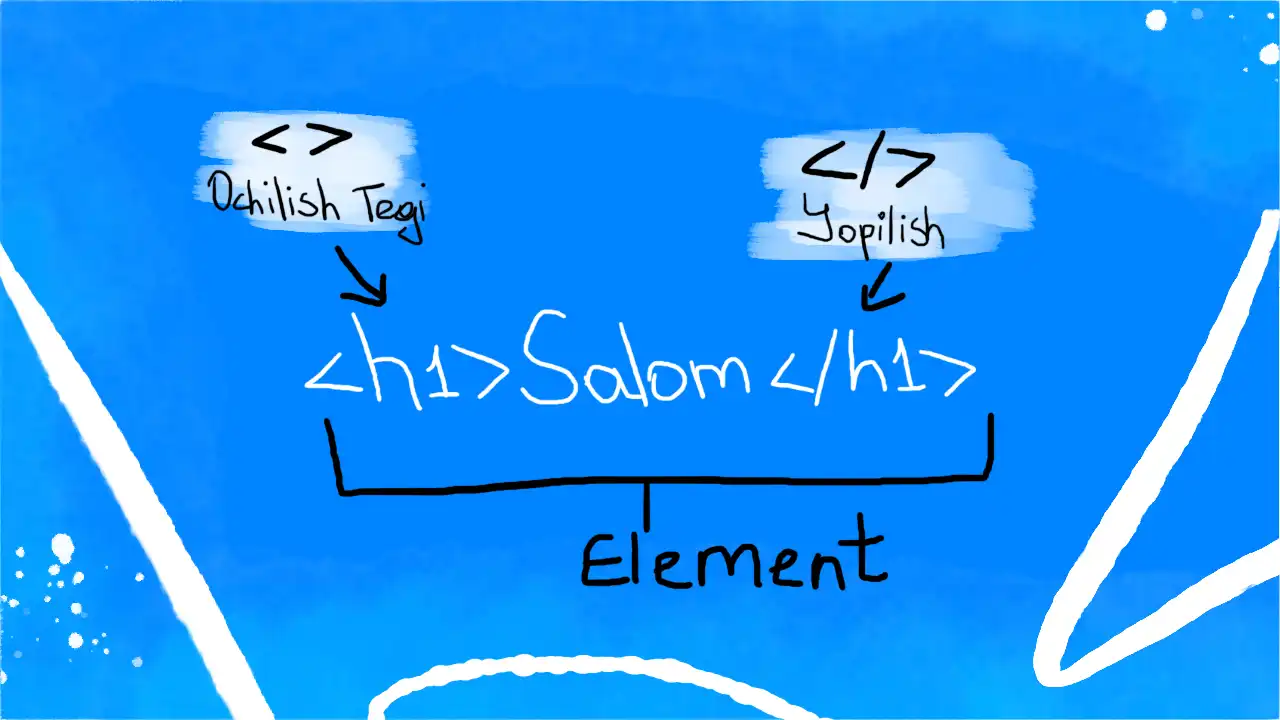 <>
Ochilish Tegi
</>
Yopilish
<h1>Salom</h1>
Element